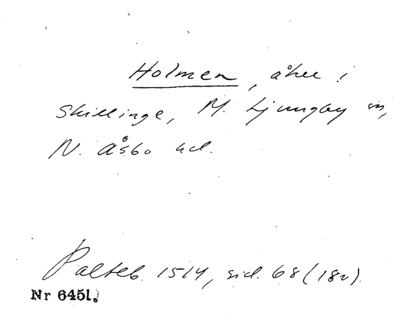 Holmen, åker i
Skillinge, M. Ljungby sn,
N. Åsbo hd.
Palteb. 1514, sid. 68 (182).
Nr 6451.